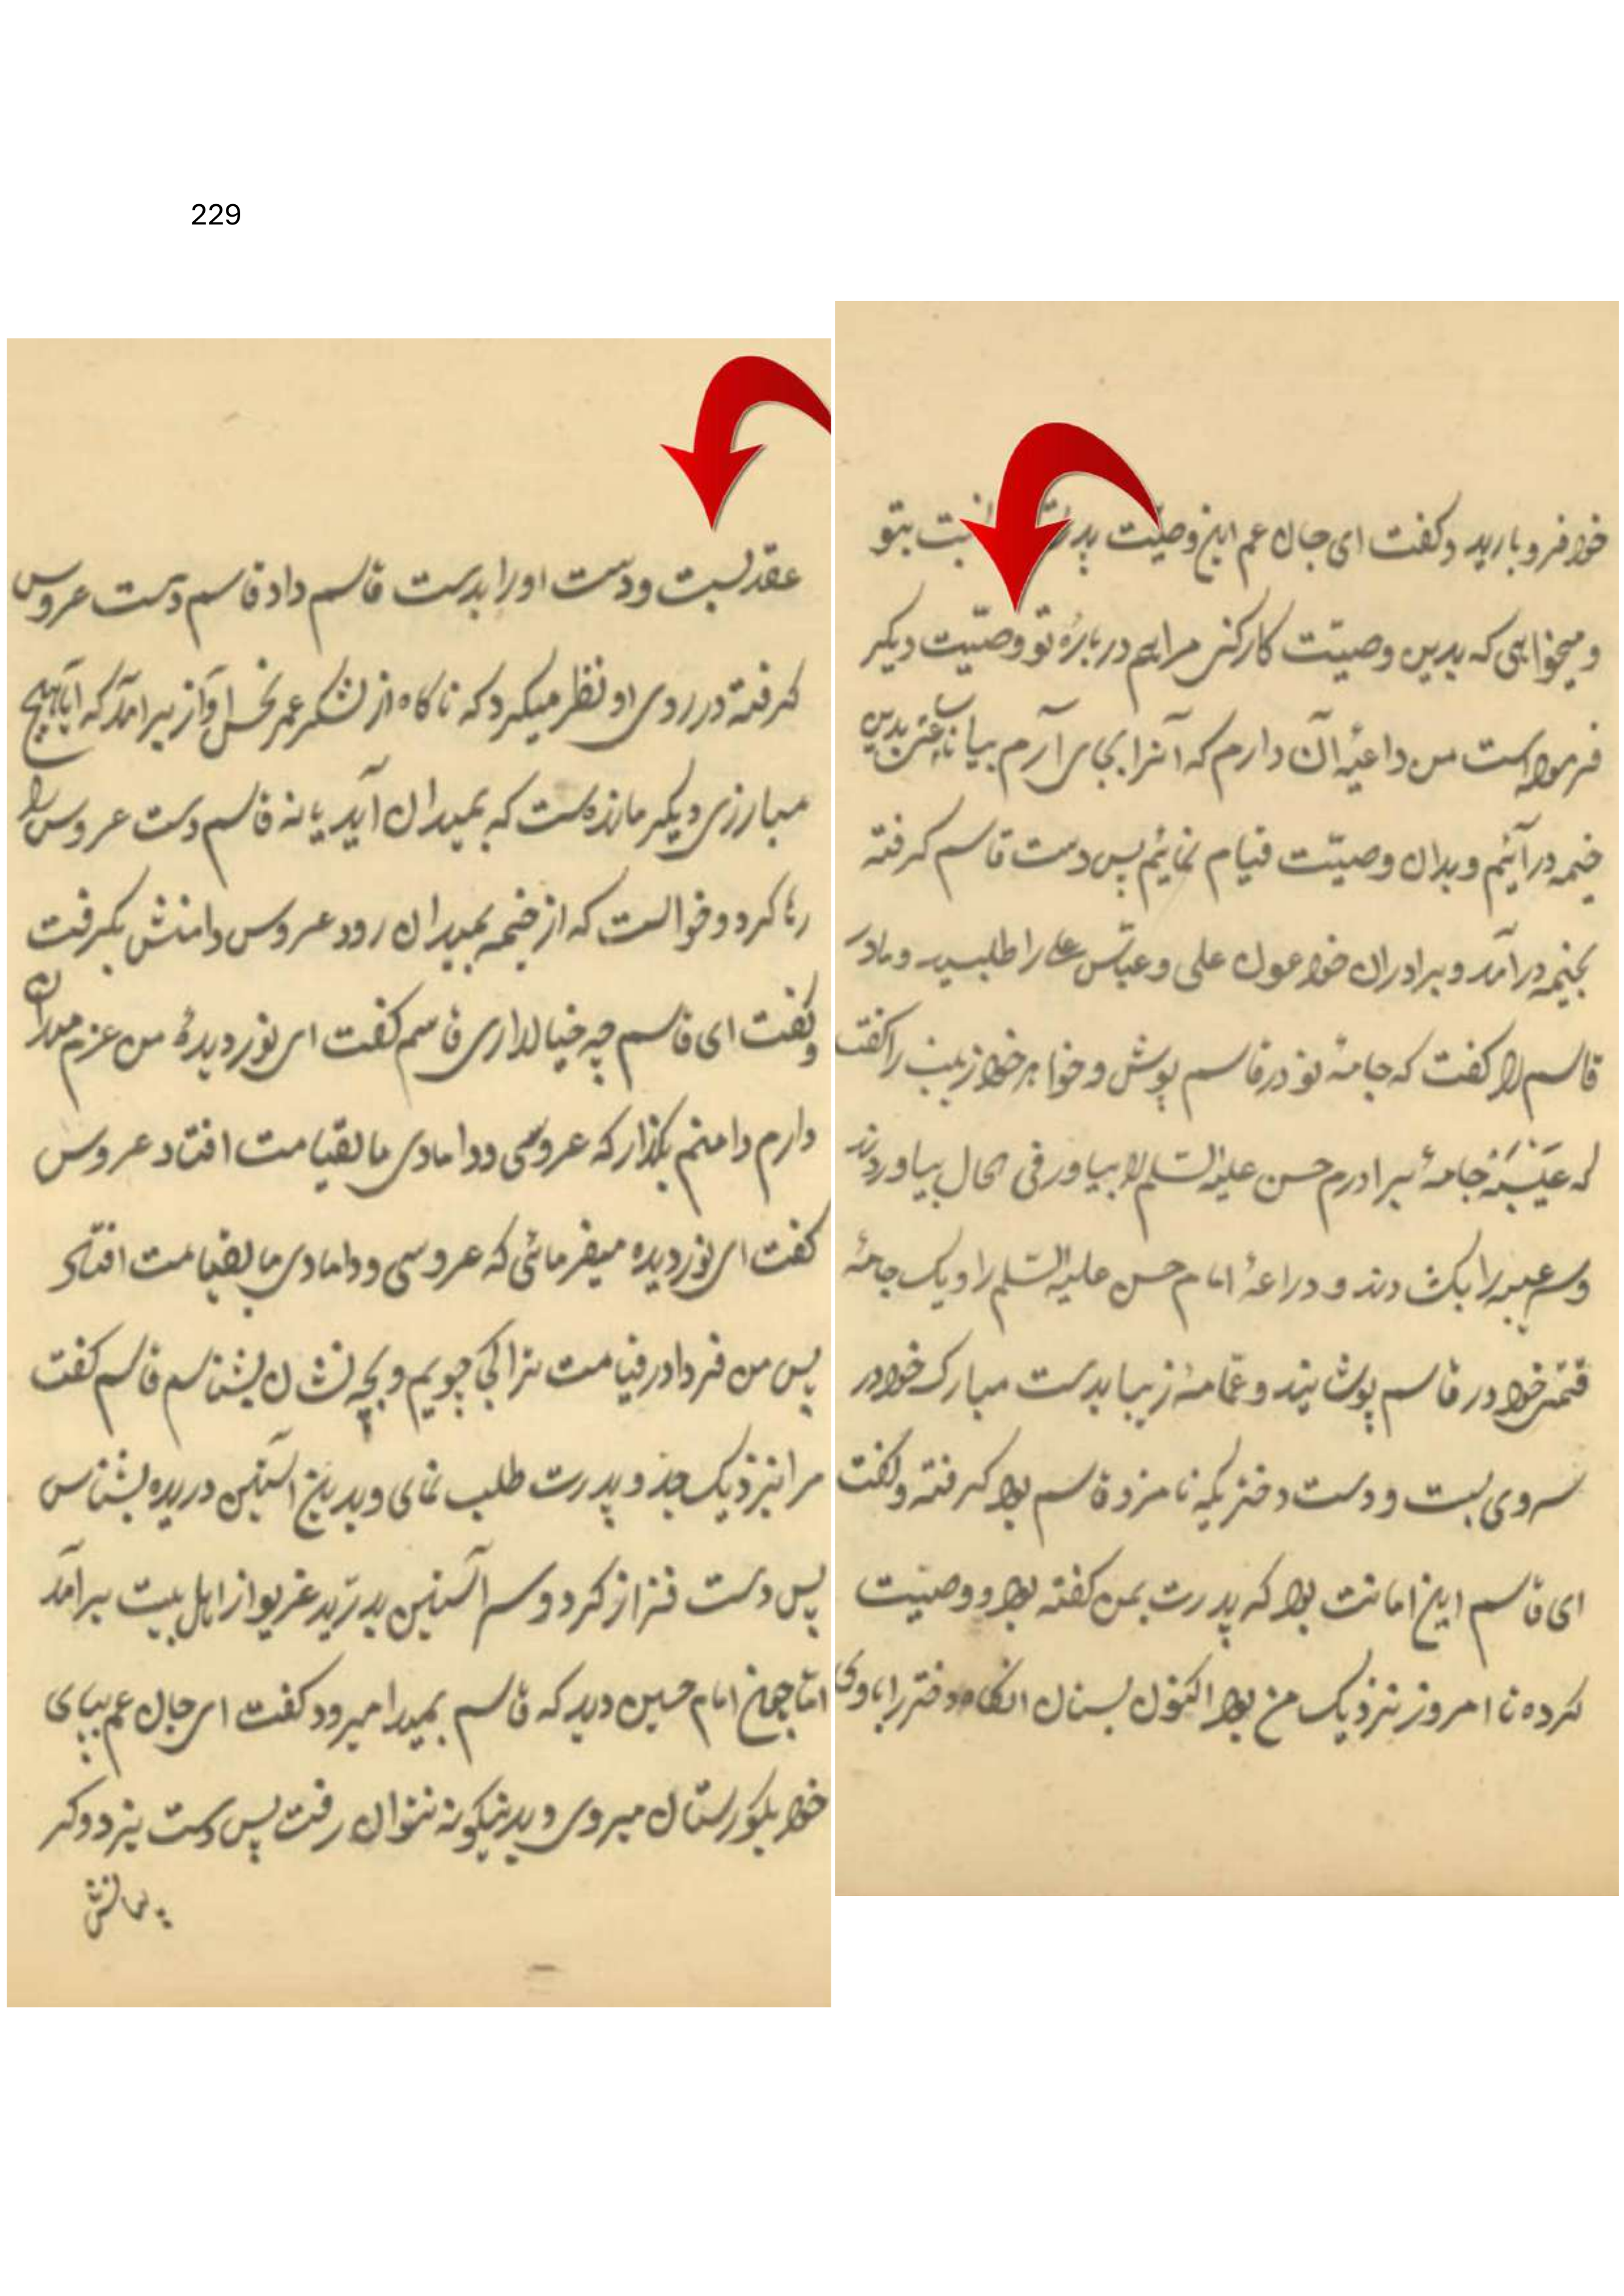 229
خود فرو بارید و گفت ای جان عم این وصیّت پدر نسبت بتو
و میخواهی که بدین وصیّت کار کنی مرا هم در بارهٔ تو وصیّت دیگر
فرموده است من داعیهٔ آن دارم که آنرا بجای آرم بیا تا بدین
خیمه درآئیم و بدان وصیّت قیام نمائیم پس دست قاسم گرفته
بخیمه درآمد و برادران خود عون علی و عبّاس علی را طلبید و مادر
قاسم را گفت که جامهٔ نو در قاسم پوش و خواهر خود زینب را گفت
که عَیبَهٔ جامهٔ برادرم حسن علیه السّلم را بیاور فی الحال بیاوردند
و سر عیبه را بکشادند و دراعهٔ امام حسن علیه السّلم را و یک جامهٔ
قیمتی خود در قاسم پوشانید و عمّامهٔ زیبا بدست مبارک خود در
سر وی بست و دست دختریکه نامزد قاسم بود گرفته و گفت
ای قاسم این امانت بود که پدرت بمن گفته بود و وصیّت
کرده تا امروز نزدیک من بود اکنون بستان انگاه دختر را با وی
عقد بست و دست او را بدست قاسم داد قاسم دست عروس
گرفته در روی او نظر میکرد که ناگاه از لشکر عمر نحس آواز برآمد که آیا هیچ
مبارزی دیگر مانده است که بمیدان آید یا نه قاسم دست عروس را
رها کرد و خواست که از خیمه بمیدان رود عروس دامنش بگرفت
و گفت ای قاسم چه خیال داری قاسم گفت ای نور دیدهٔ من عزم میدان
دارم دامنم بگذار که عروسی و دامادی ما بقیامت افتاد عروس
گفت ای نور دیده میفرمائی که عروسی و دامادی ما بقیامت افتاد
پس من فردا در قیامت ترا کجا جویم و بچه نشان بشناسم قاسم گفت
مرا نزدیک جد و پدرت طلب نمای و بدین آستین دریده بشناس
پس دست فراز کرد و سر آستین بدرّید غریو از اهل بیت برآمد
امّا چون امام حسین دید که قاسم بمیدان میرود گفت ای جان عم بپای
خود بگورستان میروی و بدینگونه نتوان رفت پس دست بزد و گر
یبانش